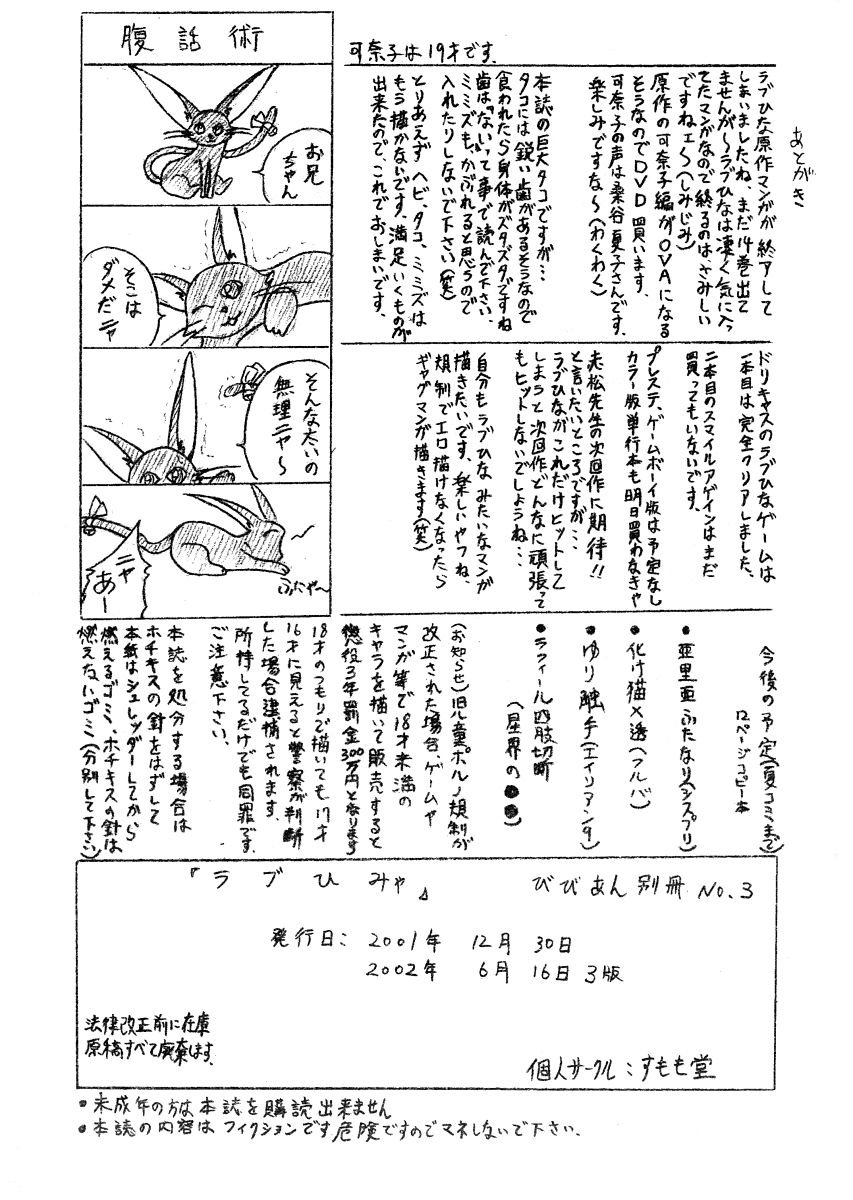 あとがき
ラブひな原作マンガが終アして
しまいましたね、まだ14巻出て
ませんが〜ラブひなは凄く気に入っ
てたマンガなので終るのは、さみしい
ですねェ〜(しみじみ)
原作の可奈子編がOVAになる
そうなのでDVD買います、
可奈子の声は桑谷夏子さんです、
楽しみですな〜(わくわく)
本誌の巨大タコですが…
タコには鋭い歯があるそうなので
食われたら身体がズタズタですね
歯は「ない」って事で読んで下さい、
ミミズも、かぶれると思うので
入れたりしないで下さい(笑)
とりあえず ヘビ、タコ、ミミズは
もう描かないです、満足いくものが
出来たので、これでおしまいです、
可奈子は19才です、
腹話術
お兄
ちゃん
そこは
ダメだ ニャ
そんな太いの
無理ニャ〜
ニャ
あー
ふにゃ〜
ドリキャスのラブひなゲームは
一本目は完全クリアしました、
二本目のスマイルアゲインはまだ
買ってもいないです、
プレステ、ゲームボーイ版は予定なし
カラー版単行本も明日買わなきゃ
赤松先生の次回作に期待!!
と言いたいところですが…
ラブひながこれだけヒットして
しまうと次回作どんなに頑張って
もヒットしないでしょうね…
自分もラブひなみたいなマンガ
描きたいです、楽しいやつね、
規制でエロ描けなくなったら
ギャグマンガ描きます(笑)
今後の予定(夏コミまで)
12ページコピー本
●亜里亜ふたなり(シスプリ)
●化け猫×透(フルバ)
●ゆり触手(エイリアン9)
●ラフィール四肢切断
(星界の●●)
(お知らせ)旧児童ポルノ規制が
改正された場合、ゲームや
マンガ等で18才未満の
キャラを描いて販売すると
懲役3年罰金300万円となります
18才のつもりで描いても17才
16才に見えると警察が判断
した場合逮捕されます、
所持してるだけでも同罪です、
ご注意下さい、
本誌を処分する場合は
ホチキスの針をはずして
本紙はシュレッダーしてから
燃えるゴミ、ホチキスの針は
燃えないゴミ(分別して下さい)
『ラブひみゃ』 びびあん別冊 No.3
発行日: 2001年 12月 30日
2002年 6月 16日 3版
法律改正前に在庫
原稿すべて廃棄します、
個人サークル:すもも堂
●未成年の方は本誌を購読出来ません
●本誌の内容はフィクションです危険ですのでマネしないで下さい、